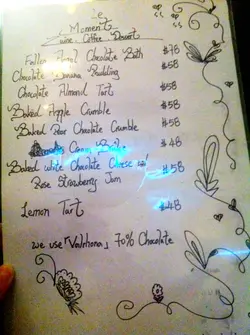 Moment
Wine . Coffee . Dessert
Fallen Angel Chocolate Bath $78
Chocolate Banana Pudding $58
Chocolate Almond Tart $58
Baked Apple Crumble $58
Baked Pear Chocolate Crumble $58
$48
Baked white Chocolate Cheese w/ $58
Rose Strawberry Jam
Lemon Tart $48
we use "Valrhona" 70% Chocolate